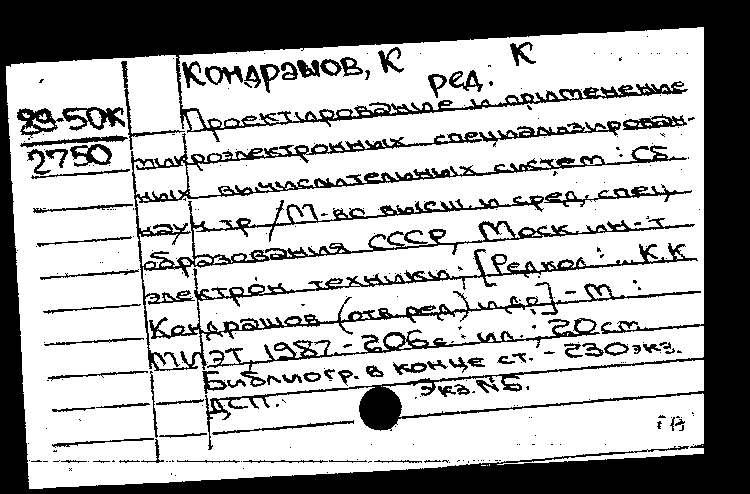 Кондрашов, К К
ред.
89-50К
2750
Проектирование и применение
микроэлектронных специализирован-
ных вычислительных систем : Сб.
науч. тр. / М-во высш. и сред. спец.
образования СССР, Моск. ин-т
электрон. техники ; [Редкол.: ... К.К
Кондрашов (отв. ред.) и др]. - М. :
МИЭТ, 1987. - 206 с. : ил. ; 20 см.
Библиогр. в конце ст. - 230 экз.
ДСП. Экз. №Б.